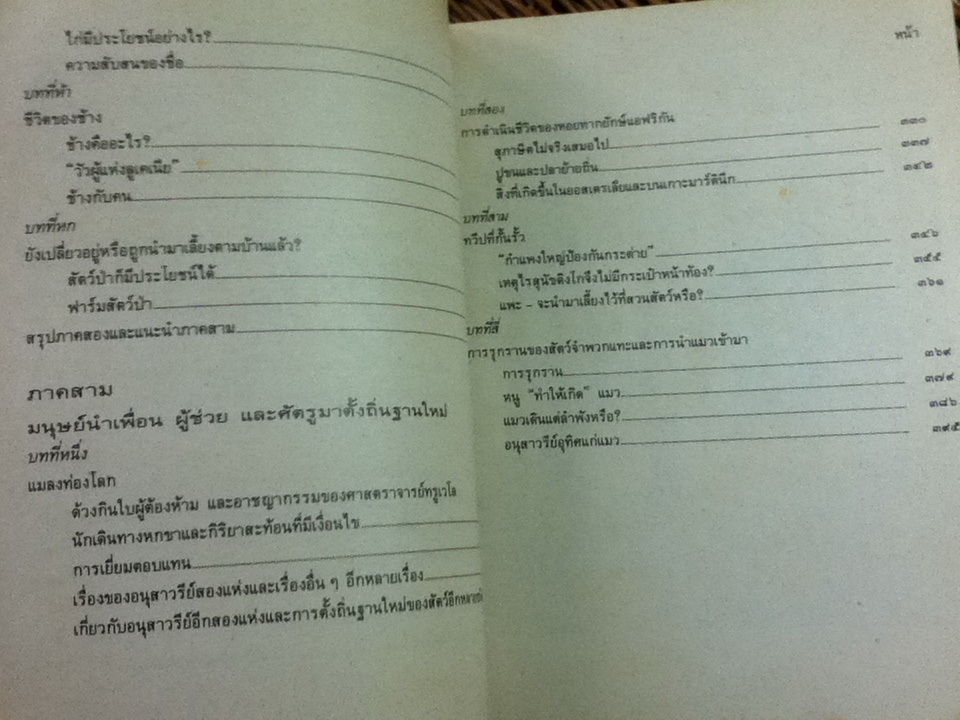 ไก่มีประโยชน์อย่างไร?
ความสับสนของชื่อ
บทที่ห้า
ชีวิตของช้าง
ช้างคืออะไร?
"วัวผู้แห่งลูเคเนีย"
ช้างกับคน
บทที่หก
ยังเปลี่ยวอยู่หรือถูกนำมาเลี้ยงตามบ้านแล้ว?
สัตว์ป่าก็มีประโยชน์ได้
ฟาร์มสัตว์ป่า
สรุปภาคสองและแนะนำภาคสาม
ภาคสาม
มนุษย์นำเพื่อน ผู้ช่วย และศัตรูมาตั้งถิ่นฐานใหม่
บทที่หนึ่ง
แมลงท่องโลก
ด้วงกินใบผู้ต้องห้าม และอาชญากรรมของศาสตราจารย์ทรูเวโล
นักเดินทางหกขาและกิริยาสะท้อนที่มีเงื่อนไข
การเยี่ยมตอบแทน
เรื่องของอนุสาวรีย์สองแห่งและเรื่องอื่น ๆ อีกหลายเรื่อง
เกี่ยวกับอนุสาวรีย์อีกสองแห่งและการตั้งถิ่นฐานใหม่ของสัตว์อีกหลาย
หน้า
บทที่สอง
การดำเนินชีวิตของหอยทากยักษ์แอฟริกัน
สุภาษิตไม่จริงเสมอไป ๓๓๐
ปูขนและปลาย้ายถิ่น ๓๓๗
สิ่งที่เกิดขึ้นในออสเตรเลียและบนเกาะมาร์ตินีก ๓๔๒
บทที่สาม
ทวีปที่กั้นรั้ว
"กำแพงใหญ่ป้องกันกระต่าย" ๓๔๖
เหตุไรสุนัขดิงโกจึงไม่มีกระเป๋าหน้าท้อง? ๓๕๕
แพะ - จะนำมาเลี้ยงไว้ที่สวนสัตว์หรือ? ๓๖๑
บทที่สี่
การรุกรานของสัตว์จำพวกแทะและการนำแมวเข้ามา
การรุกราน ๓๖๙
หนู "ทำให้เกิด" แมว ๓๗๙
แมวเดินแต่ลำพังหรือ? ๓๘๖
อนุสาวรีย์อุทิศแก่แมว ๓๙๕